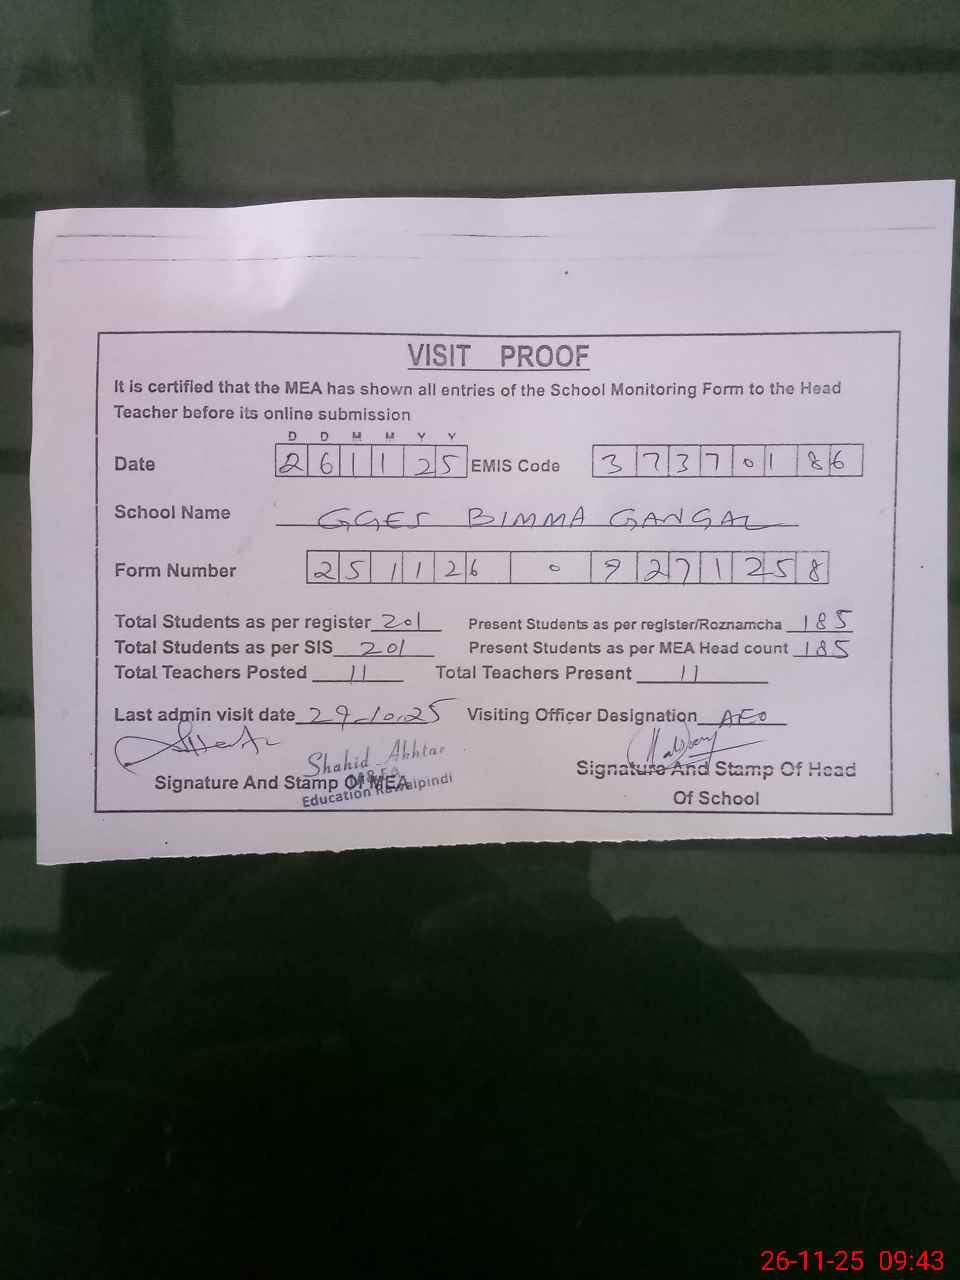 VISIT PROOF
It is certified that the MEA has shown all entries of the School Monitoring Form to the Head
Teacher before its online submission
D D M M Y Y
Date 2 6 1 1 2 5 EMIS Code 3 7 3 7 0 1 8 6
School Name GGES BIMMA GANGAL
Form Number 2 5 1 1 2 6 0 9 2 7 1 2 5 8
Total Students as per register 201 Present Students as per register/Roznamcha 185
Total Students as per SIS 201 Present Students as per MEA Head count 185
Total Teachers Posted 11 Total Teachers Present 11
Last admin visit date 29.10.25 Visiting Officer Designation AEO
Shahid Akhtar
Signature And Stamp Of MEA Signature And Stamp Of Head
Education Rawalpindi Of School
26-11-25 09:43